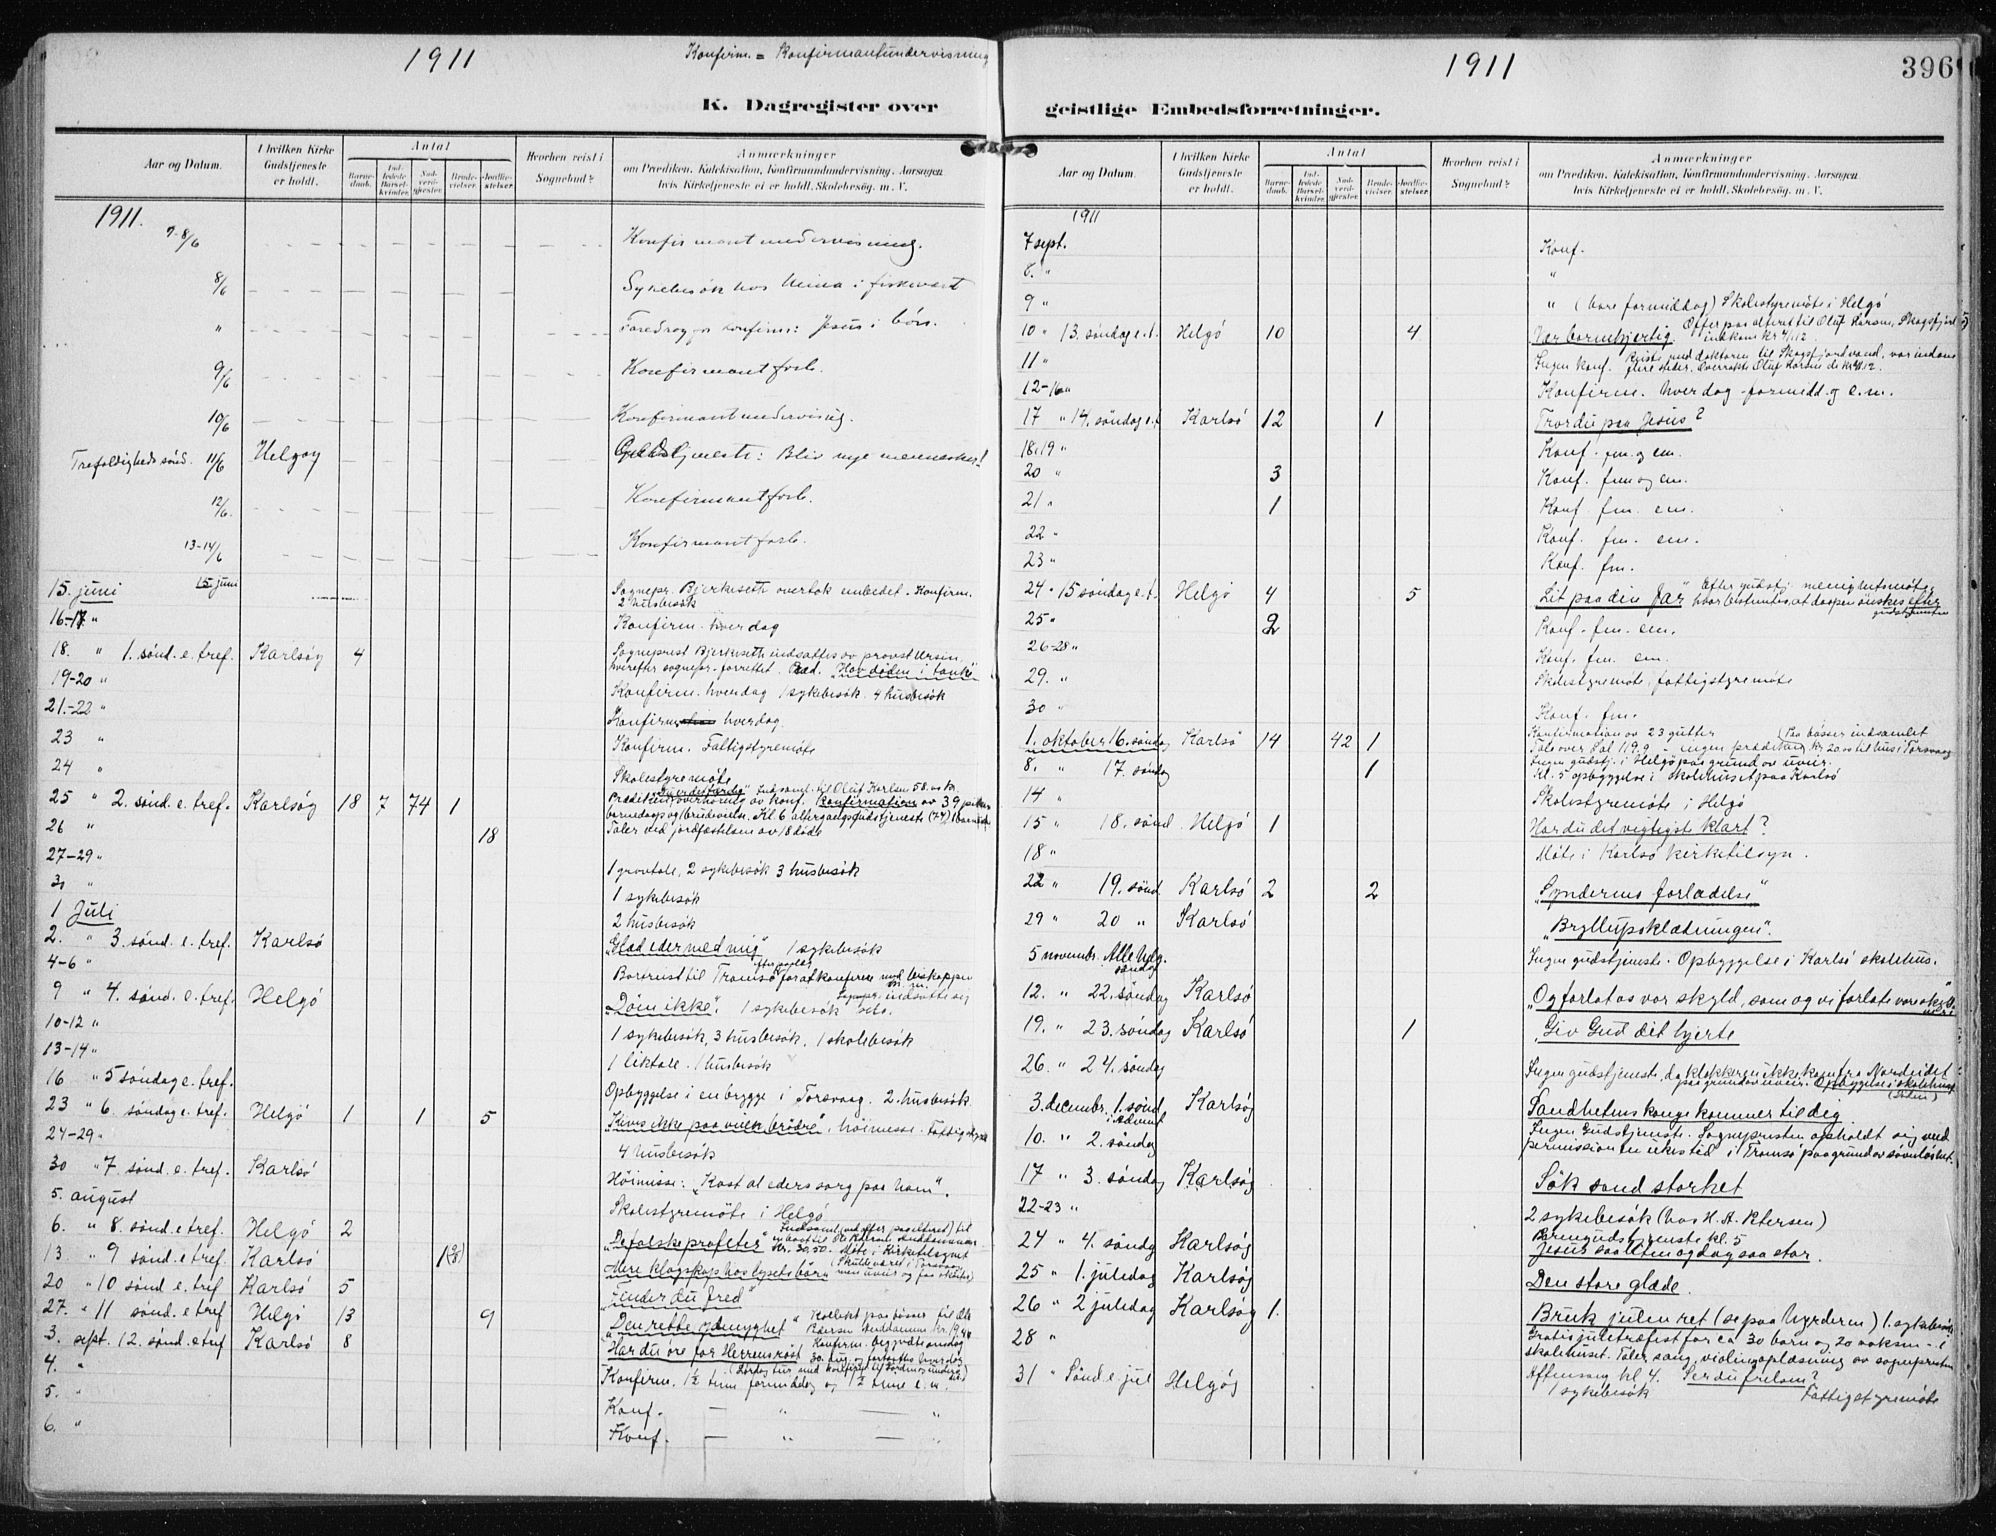 1911
Konfirm. = Konfirmantundervisning
K. Dagregister over
Aar og Datum.
I hvilken Kirke Gudstjeneste er holdt.
Antal
Barnedaab.
Indledede Barselkvinder.
Nadverdgjester.
Brudevielser.
Jordfæstelser.
Hvorhen reist i Sognebud?
Anmærkninger
om Prædiken, Katekisation, Konfirmandundervisning, Aarsagen
hvis Kirketjeneste ei er holdt, Skolebesøg, m. V.
1911.
7-8/6 Konfirmantundervisning.
8/6 Sykebesök hos
" Foredrag Jesus i
9/6 Konfirmantforb.
10/6 Konfirmantundervisng.
Trefoldigheds sönd. 11/6 Helgøy Gudstjeneste: Bliv nye mennesker!
12/6. Konfirmantforb.
13-14/6 Konfirmantforb.
15. juni 15. juni Sognepr. Bjerkeseth overtok embedet. Konfirm.
2 husbesök
16-17 " Konfirm. hverdag
18. " 1. sönd. e. tref. Karlsöy 4 Sogneprest Bjerkeseth indsattes av provst Ursin,
hverefter sognepr. forrettet. Præd. "Hav döden i tanke"
19-20 " Konfirm. hverdag 1 sykebesök. 4 husbesök
21.-22 " Konfirm. hverdag.
23 " Konfirm. Fattigstyremöte
24 " Skolestyremöte
25 " 2. sönd. e. tref. Karlsöy 18 7 74 1
konfirmation av 39
Kl 6 altergangsgudstjeneste (74)
26 " 18 Taler ved jordfæstelsen av 18 döde
27-29 " 1 gravtale, 2 sykebesök 3 husbesök
" 1 sykebesök
1 Juli 2 husbesök
2. " 3. sönd. e. tref. Karlsö "Glæd eder med mig" 1 sykebesök
4-6 " Bortreist til Tromsö for at konferere med biskoppen
9 " 4. sönd. e. tref. Helgö "Döm ikke". 1 sykebesök
10-12 " 1 sykebesök, 3 husbesök, 1 skolebesök
13-14 " 1 liktale. 1 husbesök
16 " 5 söndag e. tref. Opbyggelse i en brygge i Torsvaag. 2. husbesök
23 " 6. söndag e. tref. Helgö 1 1 5 höimesse.
24-29 " 4 husbesök
30 " 7 sönd. e. tref. Karlsö Höimesse: "Kast al eders sorg paa ham".
5. august Skolestyremöte i Helgö
6. " 8. sönd. e. tref. Helgö 2 "De falske profeter"
Kr. 30,50. Möte i Kirketilsynet
13 " 9 sönd. e. tref. Karlsö Mere klogskap hos lysets börn
20 " 10 sönd. e. tref Karlsö 5 Finder du fred"
27. " 11 sönd. e. tref Helgö 13 9 "Den rette ydmyghet"
3. sept. 12. sönd. e. tref Karlsö 8 Har du öre for Herrens röst
4. " Konfirm. 1½ time formiddag og 1½ time e. m.
5. " Konf. — " — "
6. " Konf. — " — "
1911
396
geistlige Embedsforretninger.
Aar og Datum.
I hvilken Kirke Gudstjeneste er holdt.
Antal
Barnedaab.
Indledede Barselkvinder.
Nadverdgjester.
Brudevielser.
Jordfæstelser.
Hvorhen reist i Sognebud?
Anmærkninger
om Prædiken, Katekisation, Konfirmandundervisning, Aarsagen
hvis Kirketjeneste ei er holdt, Skolebesøg, m. V.
1911
7 sept. Konf.
8. " "
9 " " (bare formiddag) Skolestyremöte i Helgö
10 " 13. söndag e. t. Helgö 10 4 Vær barmhjertig. Offer paa alteret til Oluf Larsen, Skogsfjord
indkom kr 41.12
11 " Ingen konf. Reiste med doktoren til Skogsfjordvand, var indom
flere steder.
12-16 " Konfirm. hverdag formidd. og e. m.
17 " 14. söndag e. t Karlsö 12 1 Tror du paa Jesus?
18. 19 " Konf. fm. og em.
20 " 3 Konf. fm og em.
21 " 1 Konf. fm. em.
22 " Konf. fm. em.
23 " Konf. fm.
24 " 15 söndag e. t. Helgö 4 5 Lit paa din Far" Efter gudstj. menighetsmöte,
hvor bestemtes, at daapen önskes efter
gudstjenesten
25 " 2 Konf. fm. em.
26-28 " Konf. fm. em.
29. " Skolestyremöte, fattigstyremöte
30 " Konf. fm.
1. oktober 16. söndag Karlsö 14 42 1 Konfirmation av 23 gutter (Paa bösser indsamlet
Tale over Sal 119.9 - ingen prædiken, kr 20.00 til hus i Torsvaag
8. " 17. söndag 1 Ingen gudstj. i Helgö paa grund av uveir.
Kl. 5 opbyggelse i skolehuset paa Karlsö
14 " Skolestyremöte i Helgö
15 " 18. sönd. Helgö 1 Har du det vigtigste klart?
18 " Möte i Karlsö kirketilsyn.
22 " 19. sönd. Karlsö 2 2 "Syndernes forladelse"
29 " 20 " Karlsö "Bryllupsklædningen".
5 novembr. Alle helg. söndag Ingen gudstjeneste. Opbyggelse i Karlsö skolehus.
12. " 22. söndag Karlsö "Og forlat os vor skyld, som og vi forlate vore
19. " 23. söndag Karlsö 1 "Giv Gud dit hjerte
26. " 24. söndag Ingen gudstjeneste, da klokkeren ikke kom fra Nordeidet
paa grund av uveir. Opbyggelse i skolehuset
3. decembr. 1. sönd. i Advent Karlsöy Sandhetens konge kommer til dig
10. " 2. söndag Ingen Gudstjeneste. Sognepresten opholdt sig med
permission en ukes tid i Tromsö paa grund av sövnlöshet.
17 " 3. söndag Karlsöy Sök sand storhet
22-23 " 2 sykebesök (hos H. A. Petersen)
24 " 4. söndg Karlsöy Barnegudstjeneste kl. 5
Jesus saa liten og dog saa stor.
25 " 1. juledag Karlsöy Den store glæde.
26 " 2 juledag Karlsöy 1. Bruk julen ret (se paa hyrderne) 1. sykebesök
28 " Gratis juletræfest for ca 30 barn og 20 voksne - i
skolehuset. Taler, sang, violin, oplæsning av sognepresten
31 " Sönd. e. jul Helgöy Aftensang kl 4. Ser du frelsen?
1 sykebesök Fattigstyremöte